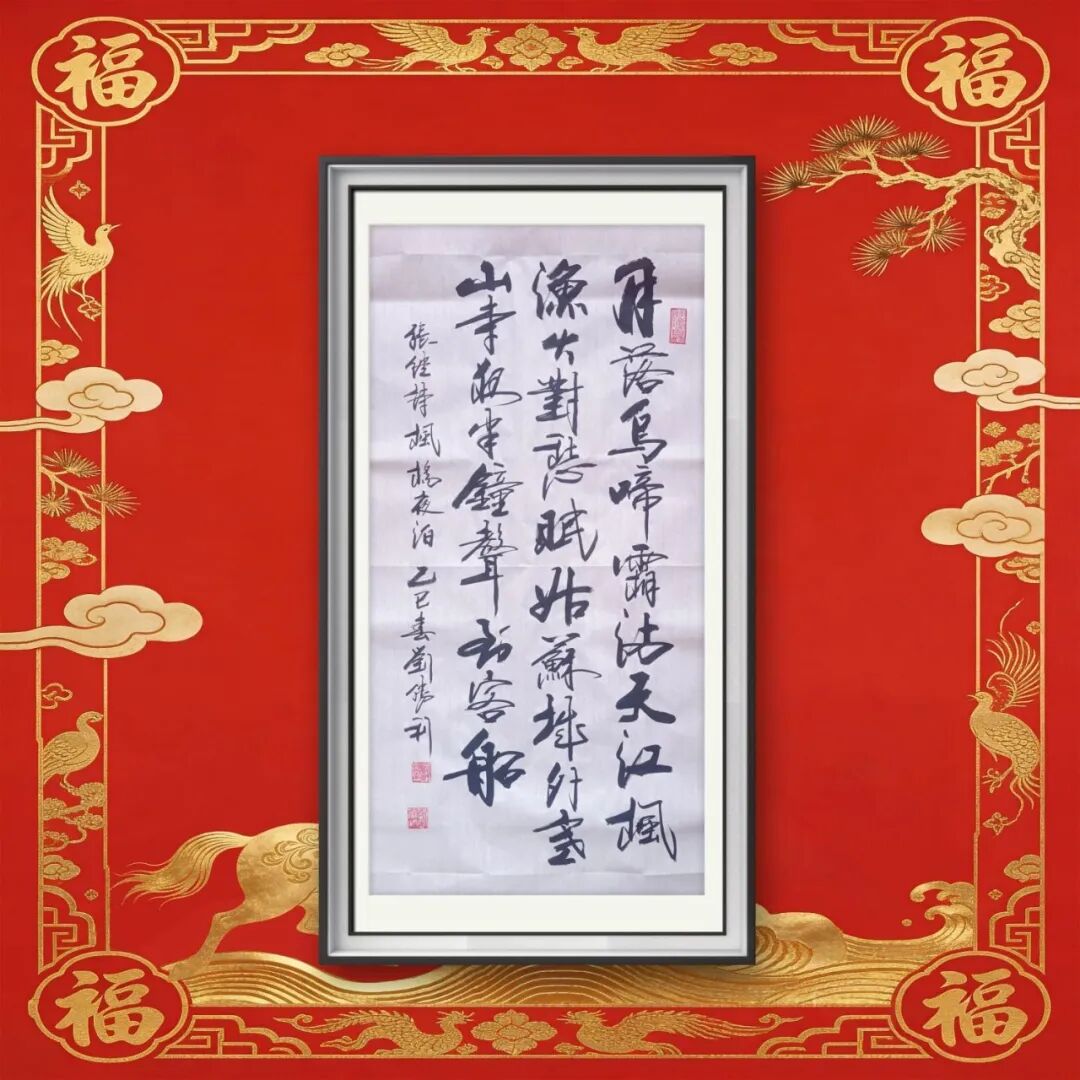 福
福
月落烏啼霜滿天江楓
漁火對愁眠姑蘇城外寒
山寺夜半鐘聲到客船
張继詩楓橋夜泊 乙巳春劉勝利
福
福